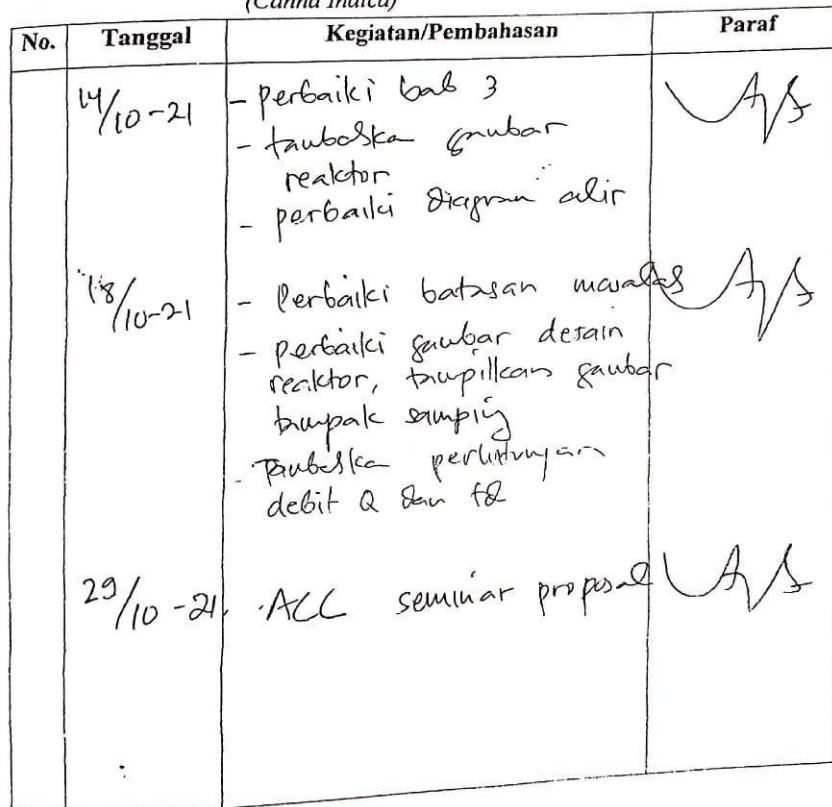 (Canna Indica)
No. Tanggal Kegiatan/Pembahasan Paraf
14/10-21 - perbaiki bab 3
- tambahka gambar
reaktor
- perbaiki diagram alir
18/10-21 - Perbaiki batasan masalas
- perbaiki gambar desain
reaktor, tampilkan gambar
tampak samping
- Tambahka perhitungan
debit Q dan td
29/10-21. . ACC seminar proposal